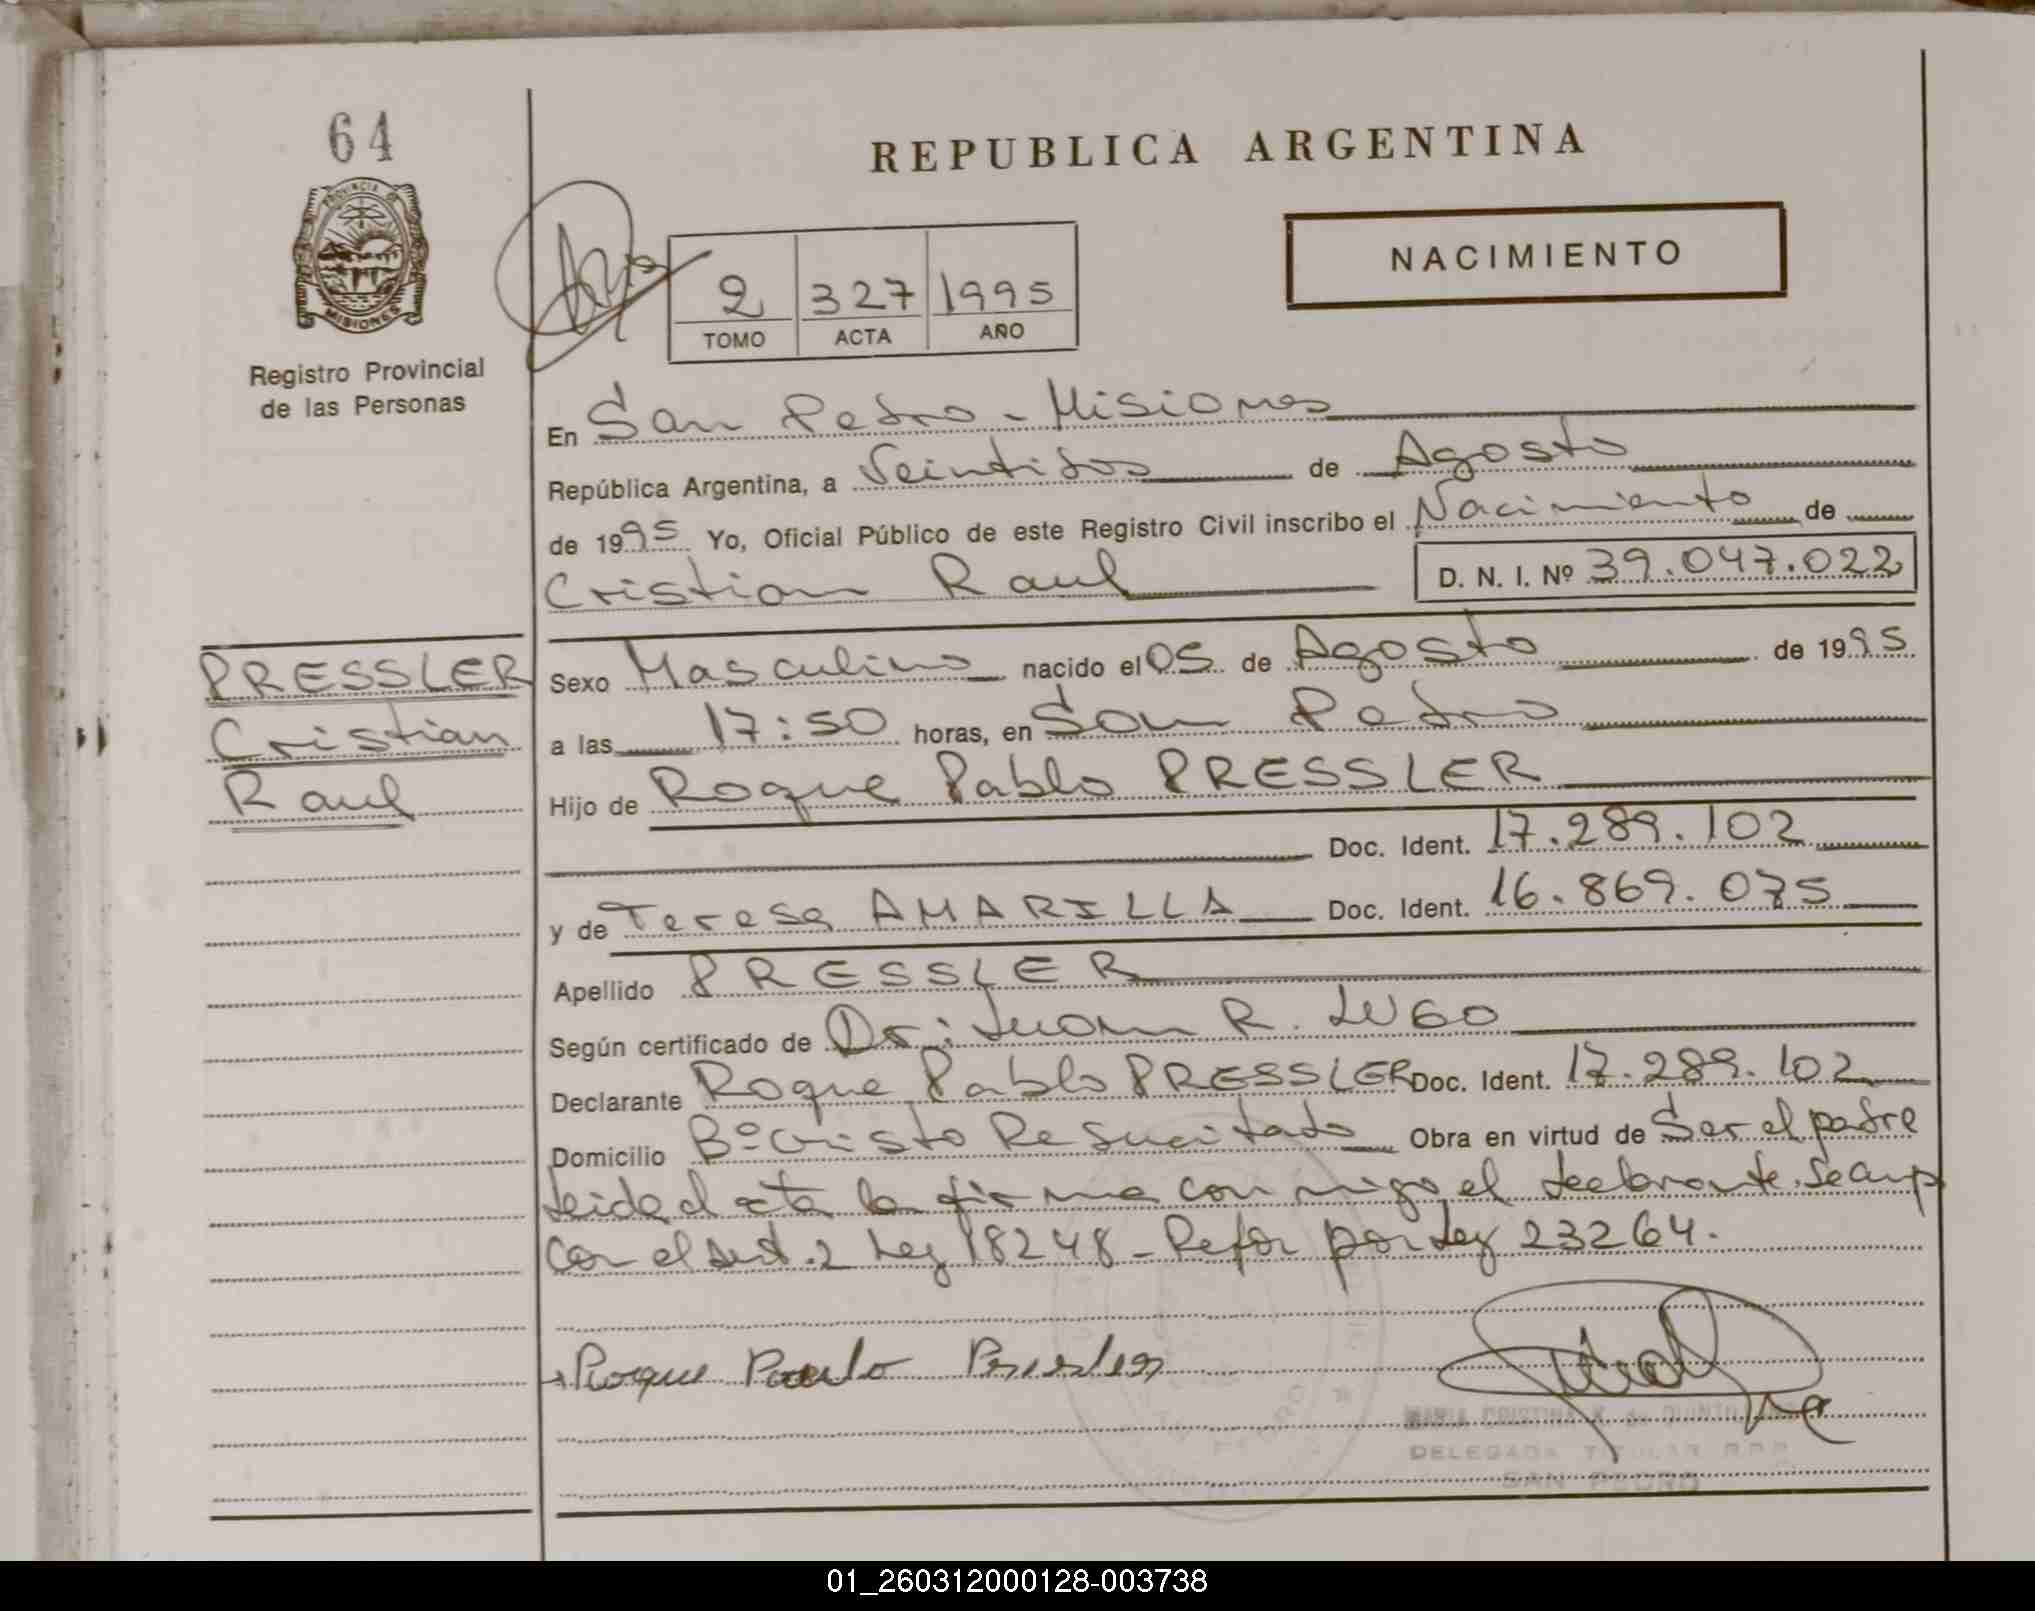 64
PROVINCIA DE
MISIONES
Registro Provincial
de las Personas
REPUBLICA ARGENTINA
NACIMIENTO
2 327 1995
TOMO ACTA AÑO
En San Pedro - Misiones
República Argentina, a Veintidos de Agosto
de 1995 Yo, Oficial Público de este Registro Civil inscribo el Nacimiento de
Cristian Raul D. N. I. Nº 39.047.022
PRESSLER
Cristian
Raul
Sexo Masculino nacido el 05 de Agosto de 1995
a las 17:50 horas, en San Pedro
Hijo de Roque Pablo PRESSLER
Doc. Ident. 17.289.102
y de Teresa AMARILLA Doc. Ident. 16.869.075
Apellido PRESSLER
Según certificado de Dr: Juan R. LUGO
Declarante Roque Pablo PRESSLER Doc. Ident. 17.289.102
Domicilio Bº Cristo Resucitado Obra en virtud de Ser el padre
Leida el acta la firma conmigo el declarante. Se cump
con el art. 2 Ley 18248 - Refor por Ley 23264.
Roque Paulo
MARIA CRISTINA K. de
DELEGADA TITULAR R.P.P.
SAN PEDRO
01_260312000128-003738